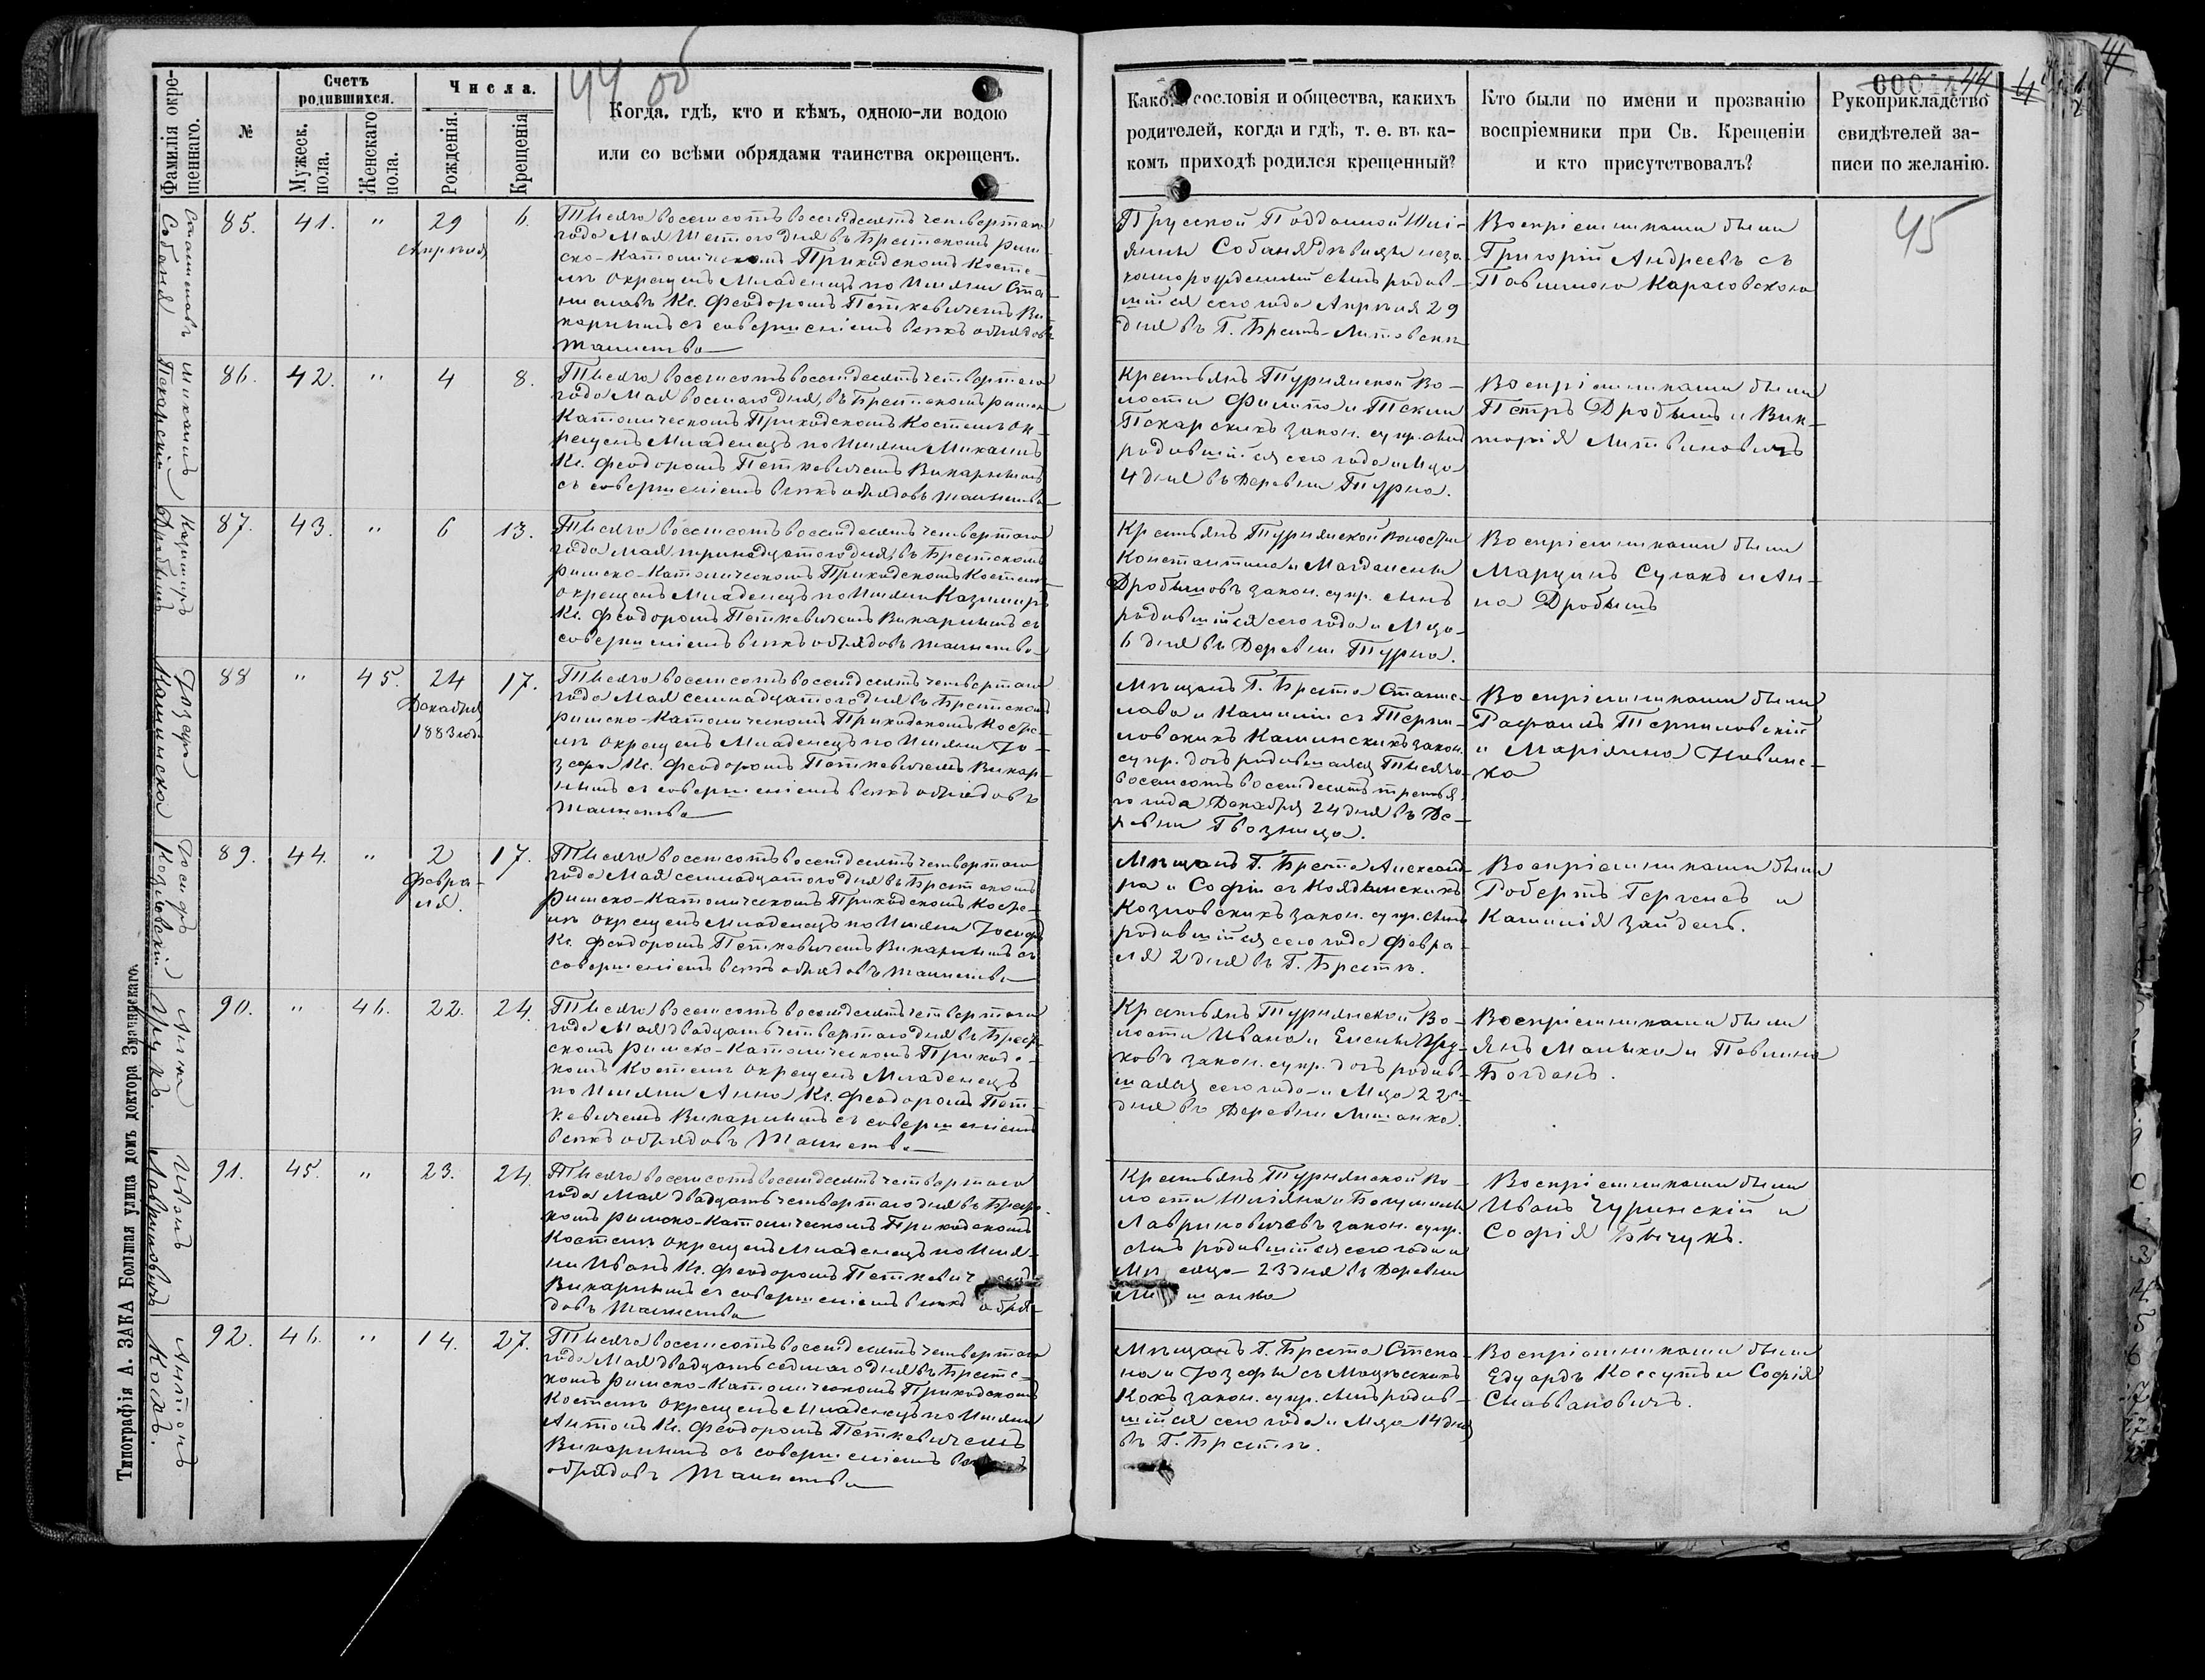 44 об
Фамилія окре-
щеннаго.
№
Счетъ
родившихся.
Мужеск.
пола.
Женскаго
пола.
Числа.
Рожденія.
Крещенія
Когда, гдѣ, кто и кѣмъ, одною-ли водою
или со всѣми обрядами таинства окрещенъ.
Станиславъ
Собаня
85.
41.
"
29
Апрѣля
6.
Тысяча восемьсотъ восемдесятъ четвертаго
года Мая Шестого дня въ Брестскомъ Рим-
ско-Католическомъ Приходскомъ Косте-
лѣ окрещенъ Младенецъ по Имяни Ста-
ниславъ Кс. Феодоромъ Петкевичемъ Ви-
карнымъ съ совершеніемъ всѣхъ обрядовъ
Таинства
Михаилъ
Пекарскій
86.
42.
"
4
8.
Тысяча восемьсотъ восемдесятъ четвертаго
года Мая восмаго дня, въ Брестскомъ Римско
Католическомъ Приходскомъ Костелѣ ок-
рещенъ Младенецъ по Имяни Михаилъ
Кс. Феодоромъ Петкевичемъ Викарнымъ
съ совершеніемъ всѣхъ обрядовъ таинства
Казимиръ
Дробышъ
87.
43.
"
6
13.
Тысяча восемьсотъ восемдесятъ четвертаго
года Мая тринадцатого дня, въ Брестскомъ
Римско-Католическомъ Приходскомъ Костелѣ
окрещенъ Младенецъ по Имяни Казимиръ
Кс. Феодоромъ Петкевичемъ Викарнымъ съ
совершеніемъ всѣхъ обрядовъ таинства
Іозефа
Каминска
88
"
45.
24
Декабря
1883 год.
17.
Тысяча восемьсотъ восемдесятъ четвертаго
года Мая семнадцатого дня въ Брестскомъ
Римско-Католическомъ Приходскомъ Косте-
лѣ окрещенъ Младенецъ по Имяни Іо-
зефа Кс. Феодоромъ Петкевичемъ Викар-
нымъ съ совершеніемъ всѣхъ обрядовъ
таинства
Іосифъ
Козловскій
89.
44.
"
2
Февра-
ля.
17.
Тысяча восемьсотъ восемдесятъ четвертаго
года Мая семнадцатого дня въ Брестскомъ
Римско-Католическомъ Приходскомъ Косте-
лѣ окрещенъ Младенецъ по Имяни Іосифъ
Кс. Феодоромъ Петкевичемъ Викарнымъ съ
совершеніемъ всѣхъ обрядовъ таинства
Анна
Грукъ.
90.
"
46.
22.
24.
Тысяча восемьсотъ восемдесятъ четвертаго
года Мая двадцать четвертаго дня въ Брест-
скомъ Римско-Католическомъ Приходс-
комъ Костелѣ окрещенъ Младенецъ
по Имяни Анна Кс. Феодоромъ Пет-
кевичемъ Викарнымъ съ совершеніемъ
всѣхъ обрядовъ Таинства
Иванъ
Лавриновичъ
91.
45.
"
23.
24.
Тысяча восемьсотъ восемдесятъ четвертаго
года Мая двадцать четвертаго дня въ Брестс-
комъ Римско-Католическомъ Приходскомъ
Костелѣ окрещенъ Младенецъ по Имя-
ни Иванъ Кс. Феодоромъ Петкевич
Викарнымъ съ совершеніемъ всѣхъ обря-
довъ Таинства
Антонъ
Кохъ.
92.
46.
"
14.
27.
Тысяча восемьсотъ восемдесятъ четвертаго
года Мая двадцать седмаго дня въ Брестс-
комъ Римско-Католическомъ Приходскомъ
Костелѣ окрещенъ Младенецъ по Имяни
Антонъ Кс. Феодоромъ Петкевичемъ
Викарнымъ съ совершеніемъ
обрядовъ Таинства
Типографія А. ЗАКА Большая улица домъ доктора Змачинскаго.
44
Какого сословія и общества, какихъ
родителей, когда и гдѣ, т. е. въ ка-
комъ приходѣ родился крещенный?
Кто были по имени и прозванію
воспріемники при Св. Крещеніи
и кто присутствовалъ?
Рукоприкладство
свидѣтелей за-
писи по желанію.
45
Прусской Подданной Юлі-
янны Собаня дѣвицы неза-
коннорожденный сынъ родив-
шійся сего года Апрѣля 29
дня въ Г. Брестъ-Литовскѣ
Воспріемниками были
Григорій Андреевъ съ
Павлиною Карасовскою
Крестьянъ Турнянской Во-
лости Филипа и Теклии
Пекарскихъ закон. супр. сынъ
родившійся сего года и Мца
4 дня въ Деревни Турна.
Воспріемниками были
Петръ Дробышъ и Вик-
торія Литвиновичъ
Крестьянъ Турнянской Волости
Константина и Магдалены
Дробышовъ закон. супр. сынъ
родившійся сего года и Мца
6 дня въ Деревни Турна.
Воспріемниками были
Марцинъ Сулакъ и Ан-
на Дробышъ
Мѣщанъ Г. Бреста Станис-
лава и Камиліи съ Терпи-
ловскихъ Каминскихъ закон.
супр. дочь родившаяся Тысяча
восемьсотъ восемдесятъ третья-
го года Декабря 24 дня въ Де-
ревни Гвозница.
Воспріемниками были
Рафаилъ Терпиловскій
и Маріянна Новинс-
ка
Мѣщанъ Г. Бреста Александ-
ра и Софіи съ Колдынскихъ
Козловскихъ закон. супр. сынъ
родившійся сего года Февра-
ля 2 дня въ Г. Брестѣ.
Воспріемниками были
Робертъ Гергенсъ и
Камилія Зайдель.
Крестьянъ Турнянской Во-
лости Ивана и Елены Гру-
ковъ закон. супр. дочь родив-
шаяся сего года и Мца 22
дня въ Деревни Лишанка.
Воспріемниками были
Янъ Малыха и Павлина
Богданъ.
Крестьянъ Турнянской Во-
лости Юліяна и Богумилы
Лавриновичевъ закон. супр.
сынъ родившійся сего года и
Мѣсяца 23 дня въ Деревни
Лишанка
Воспріемниками были
Иванъ Чуринскій и
Софія Бычукъ.
Мѣщанъ Г. Бреста Степа-
на и Іозефы съ Мацѣсскихъ
Кохъ закон. супр. сынъ родив-
шійся сего года и Мца 14 дня
въ Г. Брестѣ.
Воспріемниками были
Едуардъ Коссутъ и Софія